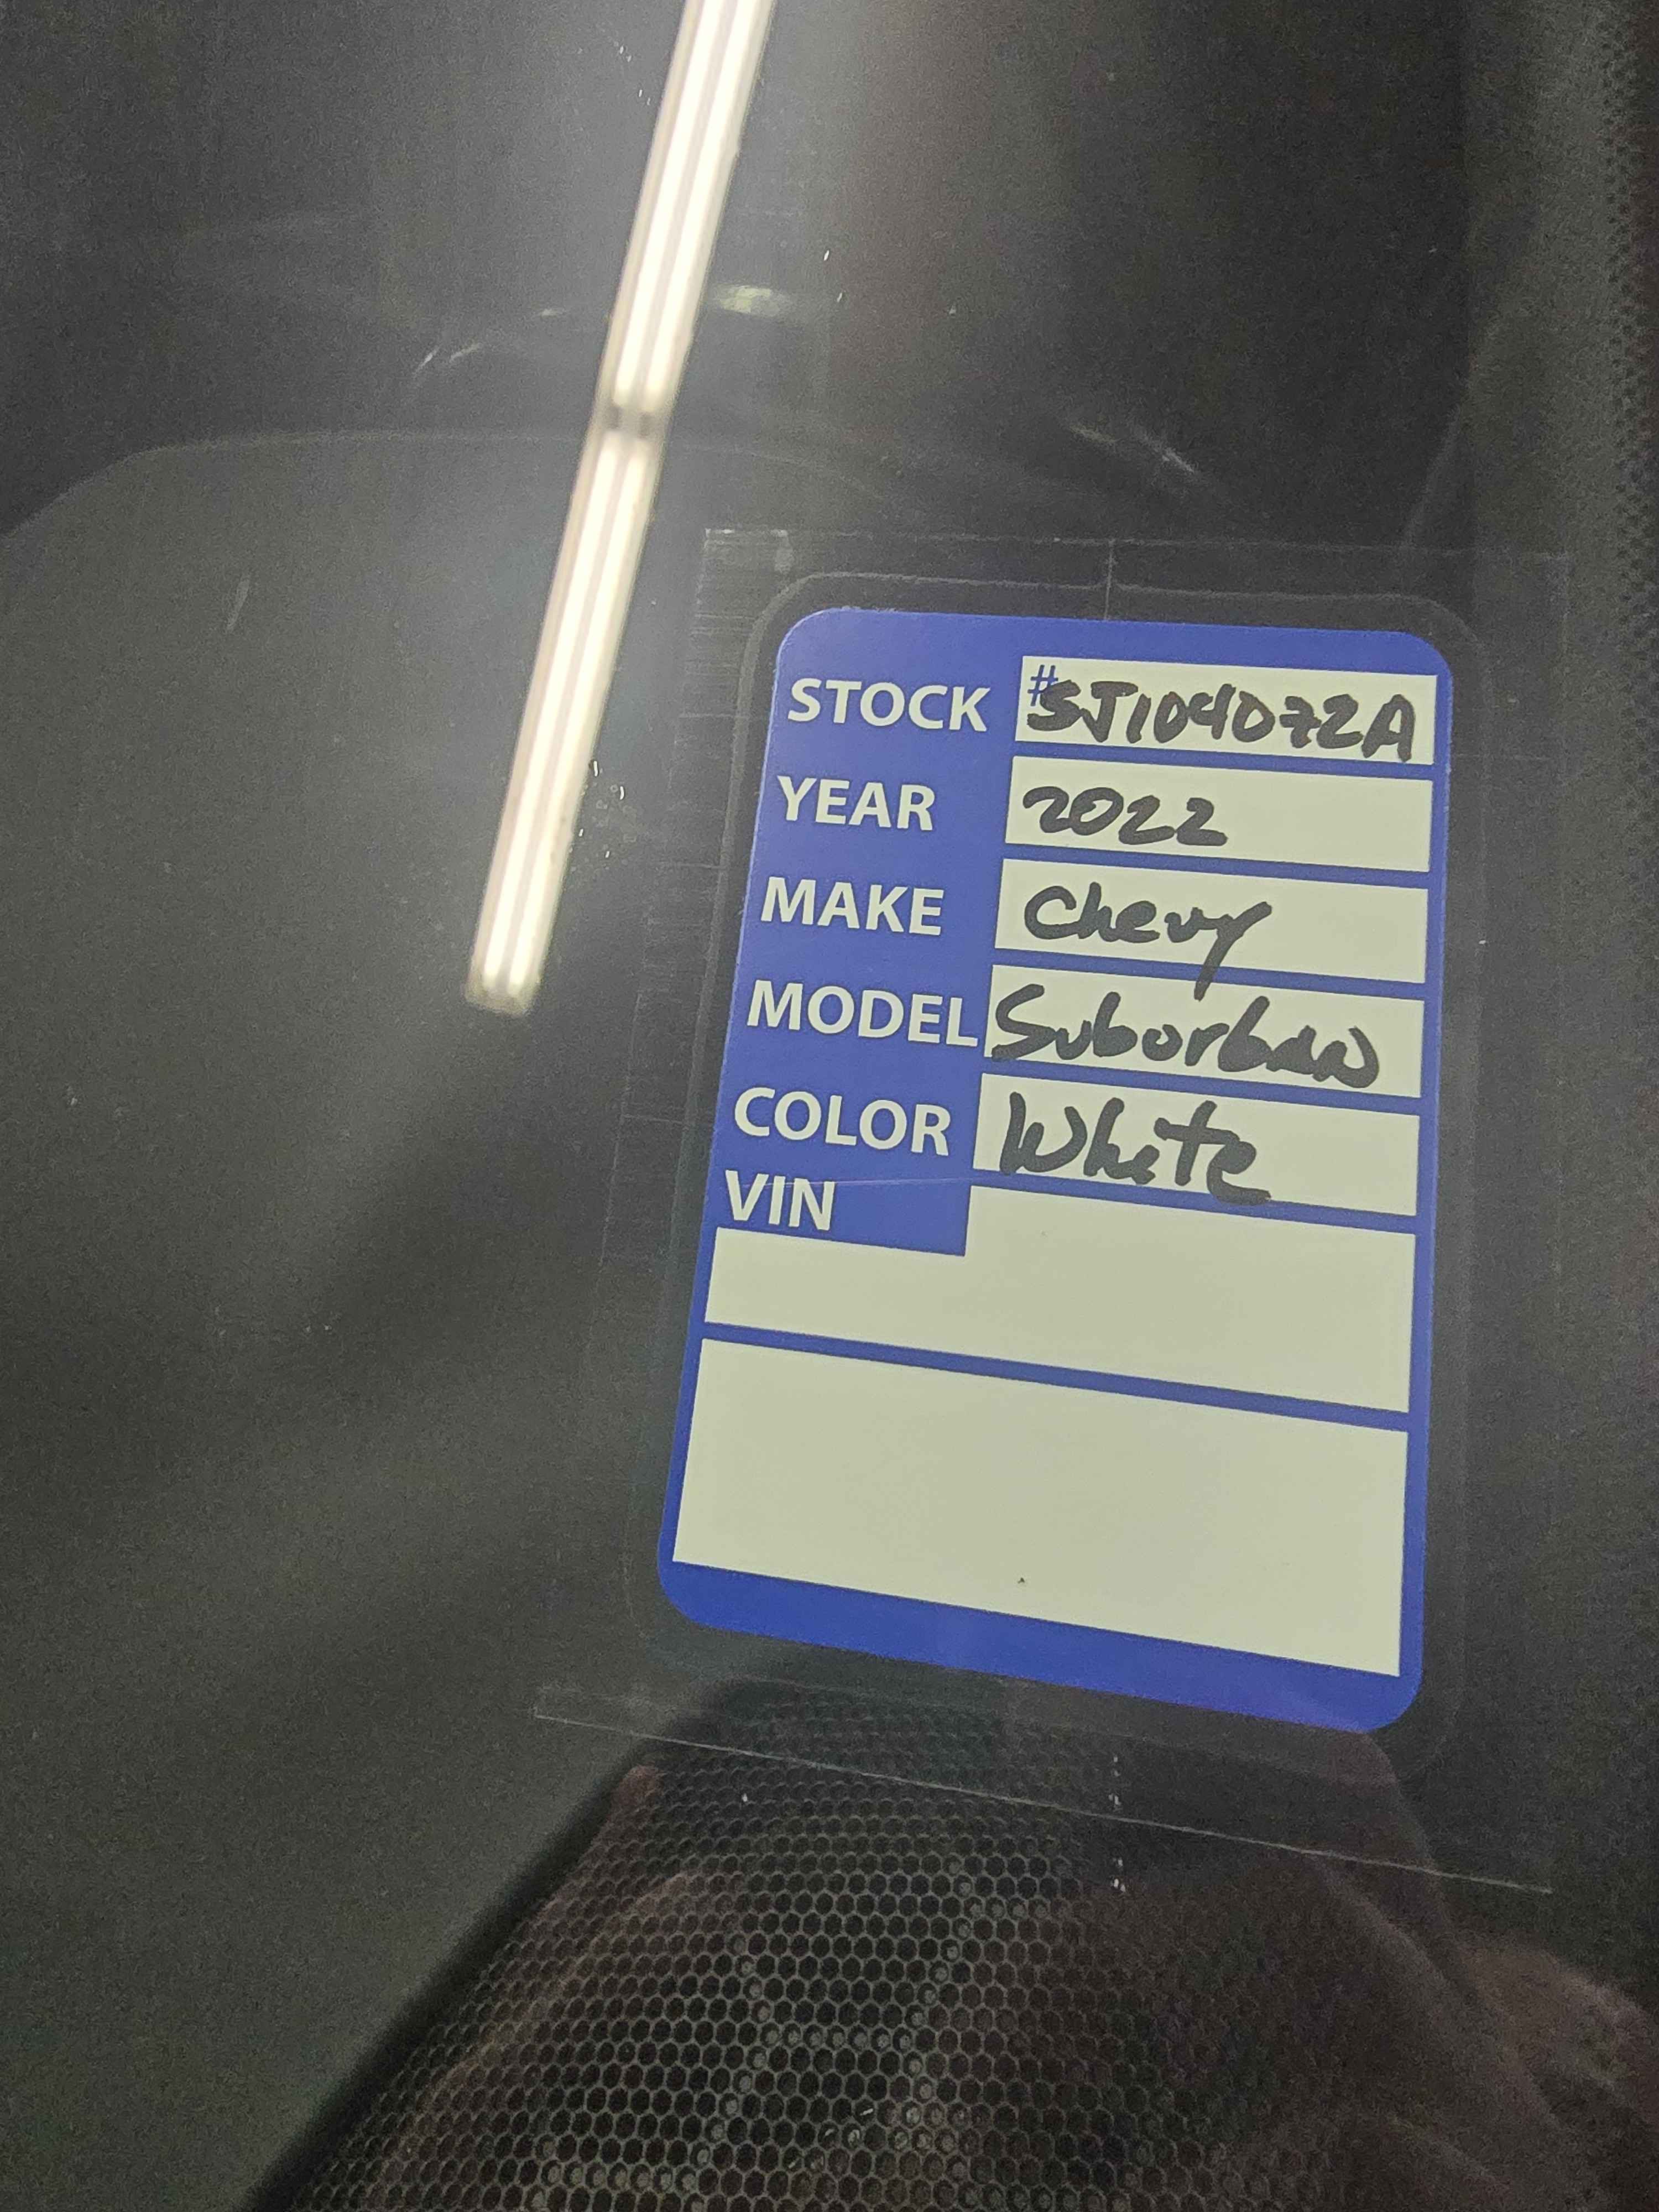 STOCK #SJ104072A
YEAR 2022
MAKE Chevy
MODEL Suborban
COLOR White
VIN